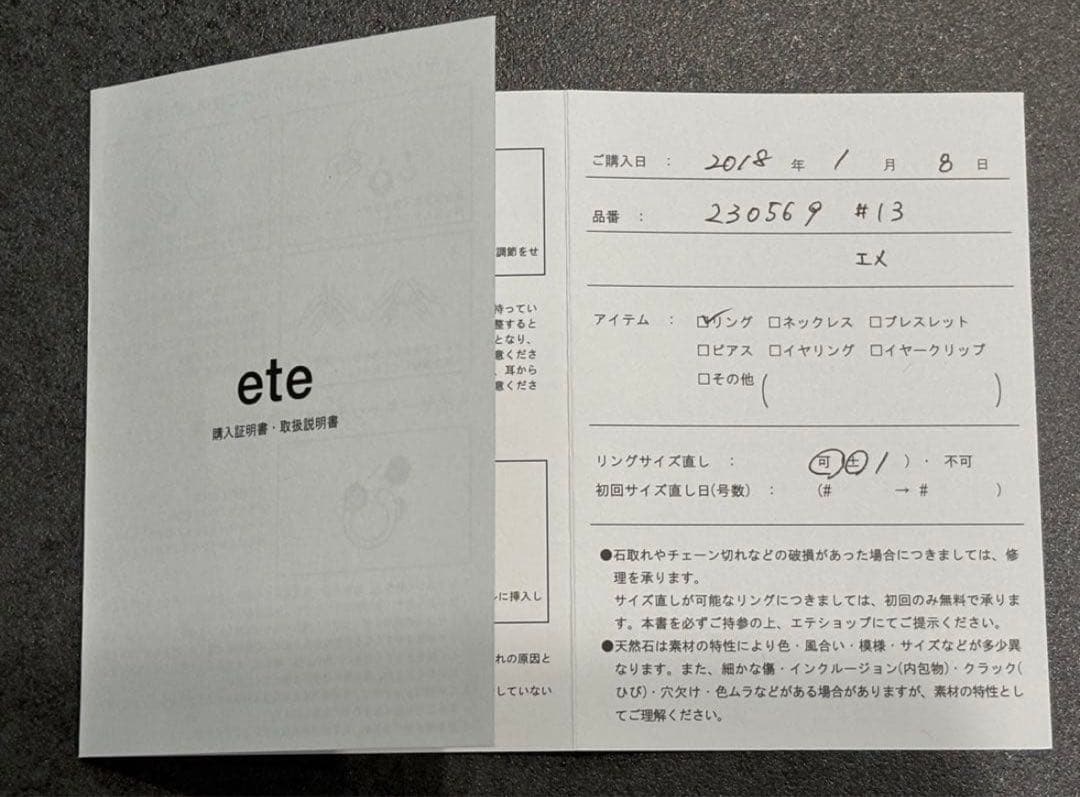 ete
購入証明書・取扱説明書
調節をせ
持ってい
整すると
となり、
意くださ
、耳から
意くださ
に挿入し
れの原因と
していない
ご購入日 : 2018 年 1 月 8 日
品番 : 230569 #13
エメ
アイテム : □リング □ネックレス □ブレスレット
□ピアス □イヤリング □イヤークリップ
□その他 ( )
リングサイズ直し : 可(±1 )・不可
初回サイズ直し日(号数) : (# → # )
●石取れやチェーン切れなどの破損があった場合につきましては、修
理を承ります。
サイズ直しが可能なリングにつきましては、初回のみ無料で承りま
す。本書を必ずご持参の上、エテショップにてご提示ください。
●天然石は素材の特性により色・風合い・模様・サイズなどが多少異
なります。また、細かな傷・インクルージョン(内包物)・クラック(
ひび)・穴欠け・色ムラなどがある場合がありますが、素材の特性とし
てご理解ください。